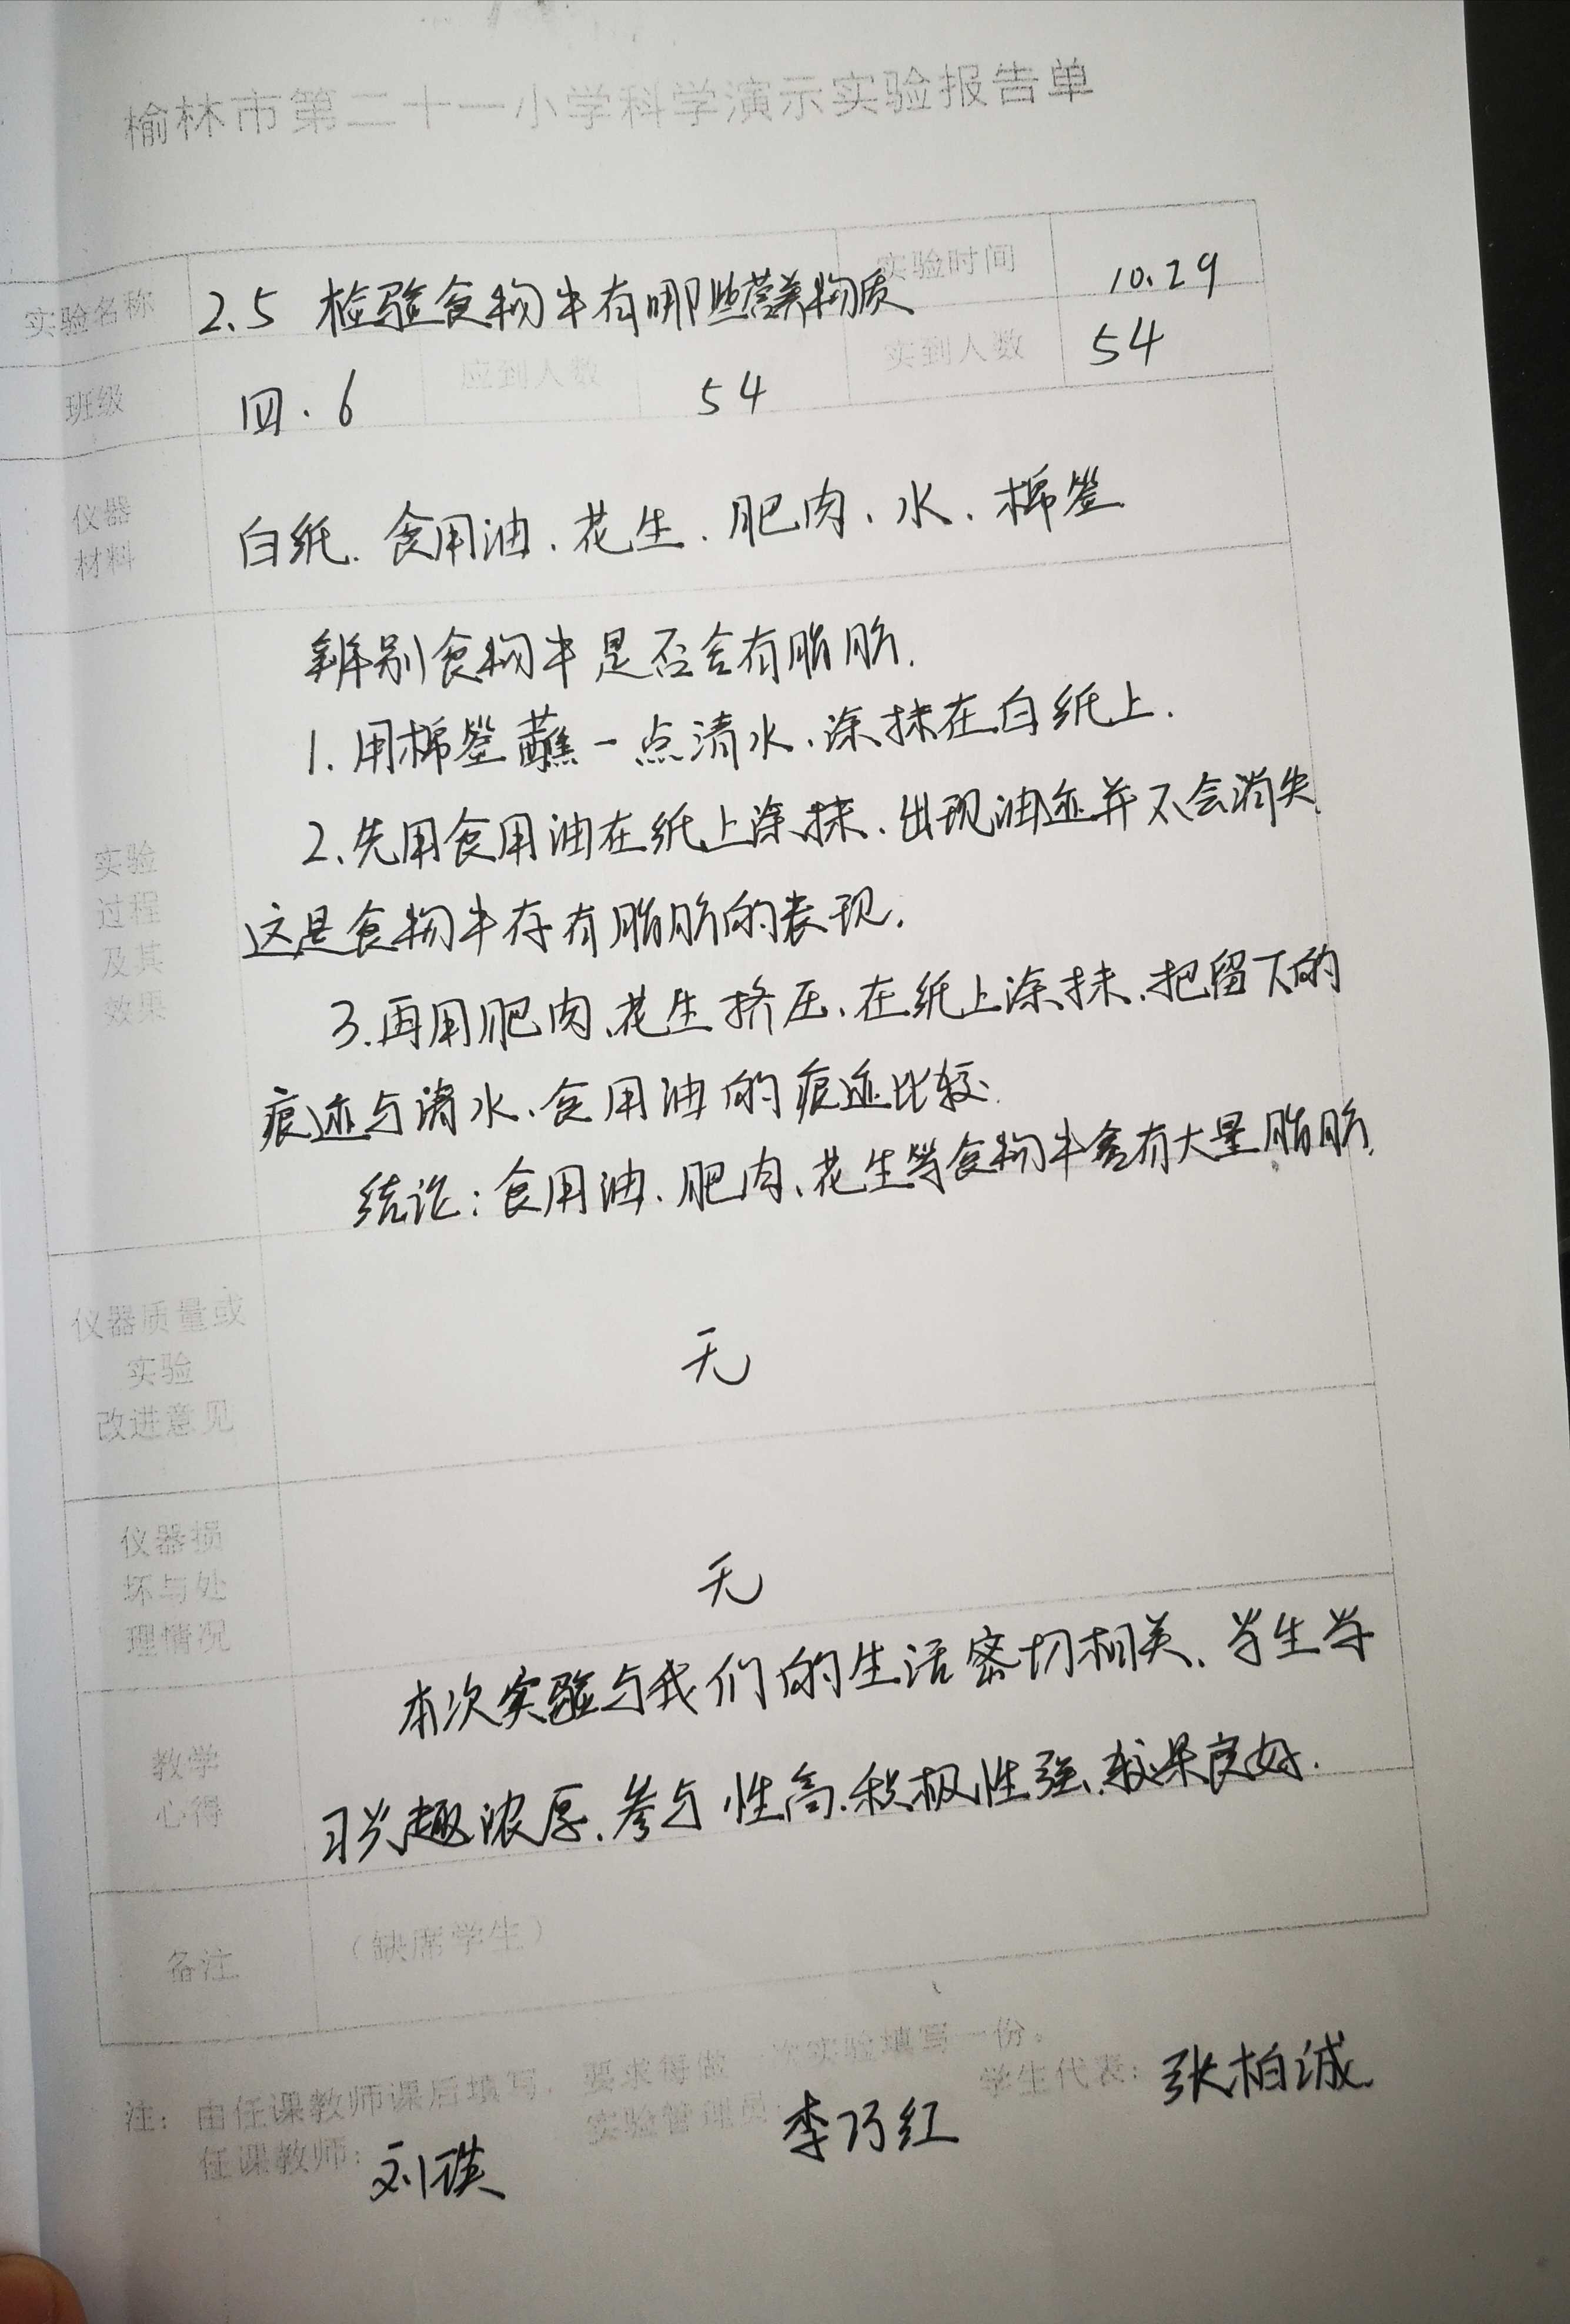 榆林市第二十一小学科学演示实验报告单
实验名称 2.5 检验食物中有哪些营养物质 实验时间 10.29
班级 四.6 应到人数 54 实到人数 54
仪器
材料
白纸.食用油、花生、肥肉、水、棉签
实验
过程
及其
效果
辨别食物中是否含有脂肪.
1.用棉签蘸一点清水、涂抹在白纸上.
2、先用食用油在纸上涂抹、出现油迹并不会消失.
这是食物中存有脂肪的表现.
3.再用肥肉、花生挤压、在纸上涂抹、把留下的
痕迹与清水、食用油的痕迹比较.
结论:食用油、肥肉、花生等食物中含有大量脂肪.
仪器质量或
实验
改进意见
无
仪器损
坏与处
理情况
无
教学
心得
本次实验与我们的生活密切相关、学生学
习兴趣浓厚、参与性高、积极性强、效果良好.
备注 (缺席学生)
注：由任课教师课后填写，要求每做一次实验填写一份。
任课教师：刘琪 实验管理员：李巧红 学生代表：张柏诚